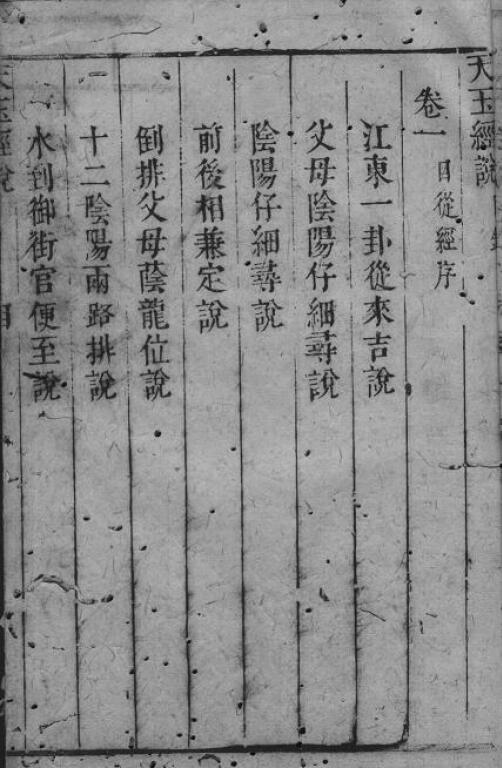 天玉經說
卷一 目從經序
江東一卦從來吉說
父母陰陽仔細尋說
陰陽仔細尋說
前後相兼定說
倒排父母蔭龍位說
十二陰陽兩路排說
水到御街官便至說
天玉經說